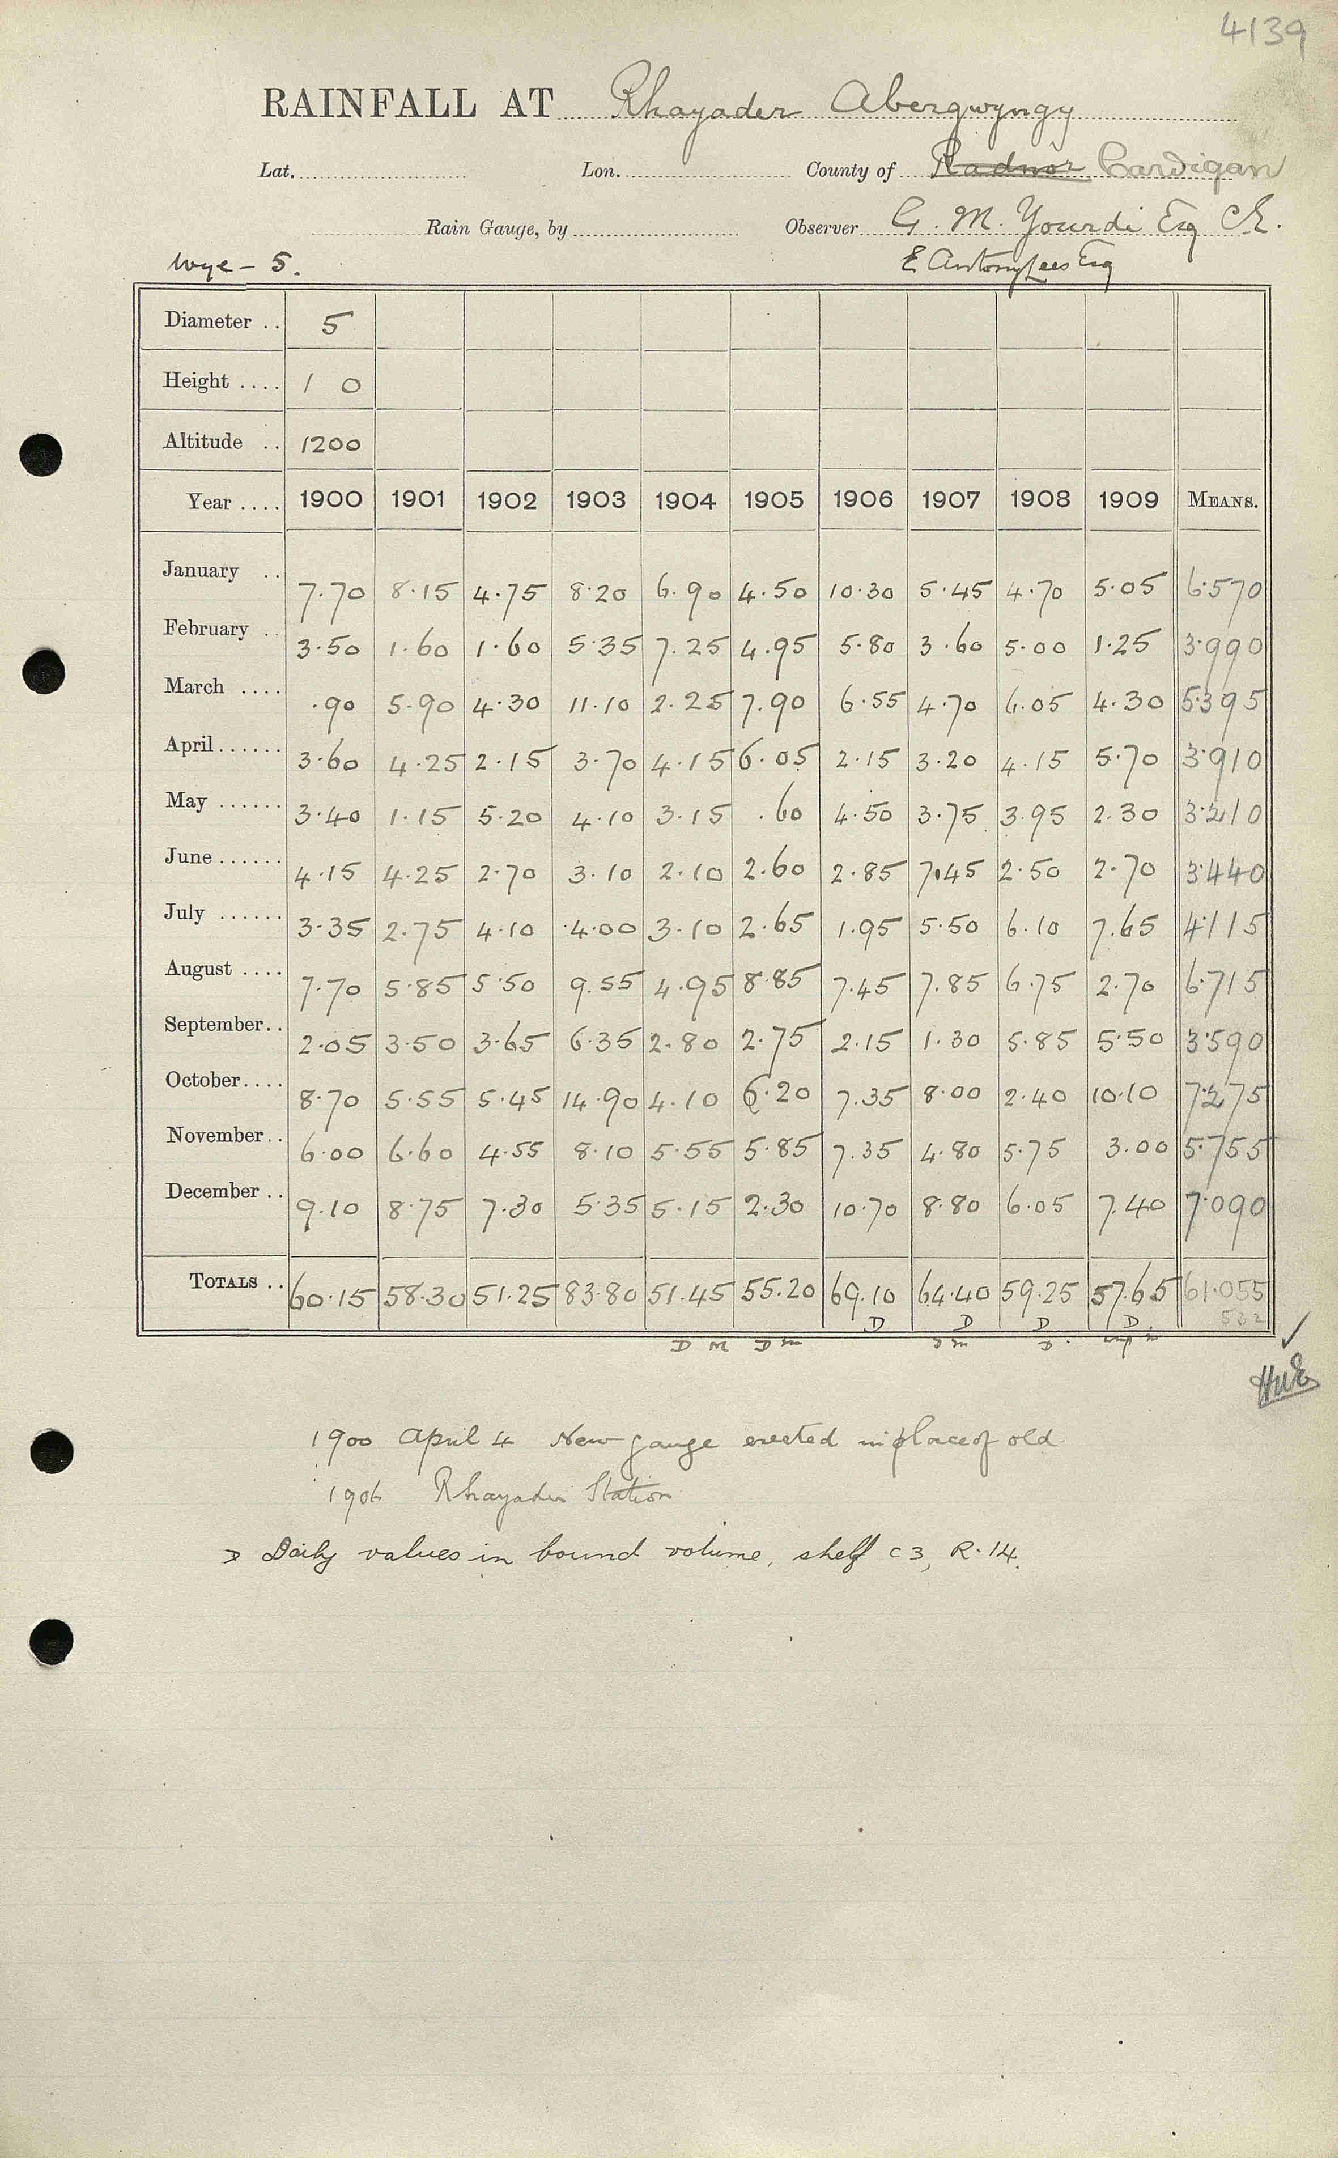 4139
RAINFALL AT Rhayader Abergwyngy
Lat. Lon. County of Radnor Cardigan
Rain Gauge, by Observer G. M. Yourdi Esq C.E.
Wye - 5. E Antony Lees Esq
Diameter .. 5
Height .... 1 0
Altitude .. 1200
Year .... 1900 1901 1902 1903 1904 1905 1906 1907 1908 1909 MEANS.
January .. 7.70 8.15 4.75 8.20 6.90 4.50 10.30 5.45 4.70 5.05 6.570
February .. 3.50 1.60 1.60 5.35 7.25 4.95 5.80 3.60 5.00 1.25 3.990
March .... .90 5.90 4.30 11.10 2.25 7.90 6.55 4.70 6.05 4.30 5.395
April ...... 3.60 4.25 2.15 3.70 4.15 6.05 2.15 3.20 4.15 5.70 3.910
May ...... 3.40 1.15 5.20 4.10 3.15 .60 4.50 3.75 3.95 2.30 3.210
June ...... 4.15 4.25 2.70 3.10 2.10 2.60 2.85 7.45 2.50 2.70 3.440
July ...... 3.35 2.75 4.10 4.00 3.10 2.65 1.95 5.50 6.10 7.65 4.115
August .... 7.70 5.85 5.50 9.55 4.95 8.85 7.45 7.85 6.75 2.70 6.715
September .. 2.05 3.50 3.65 6.35 2.80 2.75 2.15 1.30 5.85 5.50 3.590
October .... 8.70 5.55 5.45 14.90 4.10 6.20 7.35 8.00 2.40 10.10 7.275
November .. 6.00 6.60 4.55 8.10 5.55 5.85 7.35 4.80 5.75 3.00 5.755
December .. 9.10 8.75 7.30 5.35 5.15 2.30 10.70 8.80 6.05 7.40 7.090
TOTALS .. 60.15 58.30 51.25 83.80 51.45 55.20 69.10 64.40 59.25 57.65 61.055
D D D D 532
D M D m D m D
1900 April 4 New gauge erected in place of old
1906 Rhayader Station
D Daily values in bound volume, shelf C3, R.14.